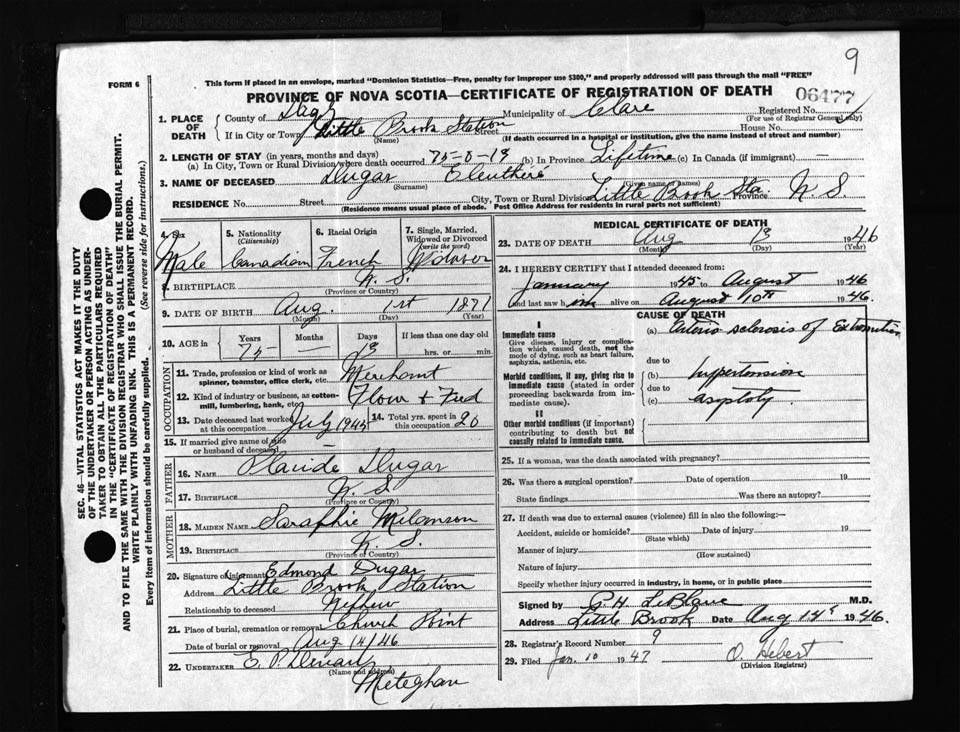 9
FORM 6
This form if placed in an envelope, marked "Dominion Statistics—Free, penalty for improper use $300," and properly addressed will pass through the mail "FREE"
PROVINCE OF NOVA SCOTIA—CERTIFICATE OF REGISTRATION OF DEATH
06477
1. PLACE OF DEATH
County of Digby Municipality of Clare Registered No.
(For use of Registrar General only)
If in City or Town Little Brook Station Street House No.
(Name) (If death occurred in a hospital or institution, give the name instead of street and number)
2. LENGTH OF STAY (in years, months and days)
(a) In City, Town or Rural Division where death occurred 75-0-13 (b) In Province Lifetime (c) In Canada (if immigrant) —
3. NAME OF DECEASED Dugas Eleuthère
(Surname) (Given name or names)
RESIDENCE No. Street City, Town or Rural Division Little Brook Sta. Province N. S.
(Residence means usual place of abode. Post Office Address for residents in rural parts not sufficient)
4. Sex Male
5. Nationality (Citizenship) Canadian
6. Racial Origin French
7. Single, Married, Widowed or Divorced (write the word) Widower
8. BIRTHPLACE N. S.
(Province or Country)
9. DATE OF BIRTH Aug. 1st 1871
(Month) (Day) (Year)
10. AGE in Years Months Days If less than one day old
75 — 13 hrs. or min.
OCCUPATION
11. Trade, profession or kind of work as spinner, teamster, office clerk, etc. Merchant
12. Kind of industry or business, as cotton-mill, lumbering, bank, etc. Flour + Feed
13. Date deceased last worked at this occupation July 1945
14. Total yrs. spent in this occupation 20
15. If married give name of wife or husband of deceased —
FATHER
16. NAME Dugas
17. BIRTHPLACE N. S.
(Province or Country)
MOTHER
18. MAIDEN NAME Saraphie Melanson
19. BIRTHPLACE N. S.
(Province or Country)
20. Signature of informant Edmond Dugas
Address Little Brook Station
Relationship to deceased Nephew
21. Place of burial, cremation or removal Church Point
Date of burial or removal Aug 14/46
22. UNDERTAKER E. P.
(Name and address)
Meteghan
MEDICAL CERTIFICATE OF DEATH
23. DATE OF DEATH Aug 13 1946
(Month) (Day) (Year)
24. I HEREBY CERTIFY that I attended deceased from:
January 1945 to August 1946
and last saw him alive on August 10th 1946.
CAUSE OF DEATH
I
Immediate cause
Give disease, injury or complication which caused death, not the mode of dying, such as heart failure, asphyxia, asthenia, etc.
(a) Arterio sclerosis of
due to
Morbid conditions, if any, giving rise to immediate cause (stated in order proceeding backwards from immediate cause).
(b) hypertension
due to
(c)
II
Other morbid conditions (if important) contributing to death but not causally related to immediate cause.
25. If a woman, was the death associated with pregnancy?
26. Was there a surgical operation? Date of operation 19
State findings Was there an autopsy?
27. If death was due to external causes (violence) fill in also the following:—
Accident, suicide or homicide? Date of injury 19
(State which)
Manner of injury
(How sustained)
Nature of injury
Specify whether injury occurred in industry, in home, or in public place
Signed by P. H. LeBlanc M.D.
Address Little Brook Date Aug 14th 1946.
28. Registrar's Record Number 9
29. Filed Jan. 10 1947 O. Hebert
(Division Registrar)
SEC. 46 VITAL STATISTICS ACT MAKES IT THE DUTY
OF THE UNDERTAKER OR PERSON ACTING AS UNDER-
TAKER TO OBTAIN ALL THE PARTICULARS REQUIRED
IN THE "CERTIFICATE OF REGISTRATION OF DEATH"
AND TO FILE THE SAME WITH THE DIVISION REGISTRAR WHO SHALL ISSUE THE BURIAL PERMIT.
WRITE PLAINLY WITH UNFADING INK. THIS IS A PERMANENT RECORD.
Every item of information should be carefully supplied. (See reverse side for instructions.)